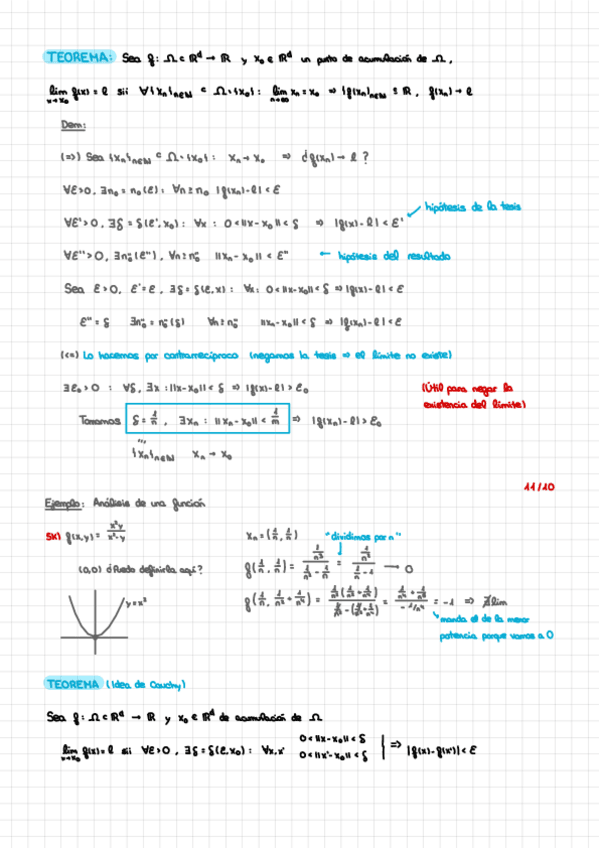 TEOREMA: Sea f: Ω ⊂ ℝᵈ → ℝ y x₀ ∈ ℝᵈ un punto de acumulación de Ω,
lim_{x→x₀} f(x) = l sii ∀{xₙ}ₙ∈ℕ ⊂ Ω∖{x₀}: lim_{n→∞} xₙ = x₀ ⇒ {f(xₙ)}ₙ∈ℕ ⊆ ℝ, f(xₙ) → l
Dem:
(=>) Sea {xₙ}ₙ∈ℕ ⊂ Ω∖{x₀}: xₙ → x₀ ⇒ ¿f(xₙ) → l?
∀ε>0, ∃n₀ = n₀(ε): ∀n ≥ n₀ |f(xₙ)-l| < ε
hipótesis de la tesis
∀ε'>0, ∃δ = δ(ε', x₀): ∀x: 0<||x-x₀||<δ ⇒ |f(x)-l| < ε'
∀ε''>0, ∃n₀''(ε''), ∀n ≥ n₀'' ||xₙ-x₀|| < ε'' ← hipótesis del resultado
Sea ε>0, ε'=ε, ∃δ=δ(ε,x): ∀x: 0<||x-x₀||<δ ⇒ |f(x)-l| < ε
ε'' = δ ∃n₀'' = n₀''(δ) ∀n ≥ n₀'' ||xₙ-x₀|| < δ ⇒ |f(xₙ)-l| < ε
(<=) Lo hacemos por contrarrecíproco (negamos la tesis ⇒ el límite no existe)
∃ε₀>0 : ∀δ, ∃x: ||x-x₀||<δ ⇒ |f(x)-l| > ε₀
(Útil para negar la
existencia del límite)
Tomamos δ = 1/n, ∃xₙ: ||xₙ-x₀|| < 1/m ⇒ |f(xₙ)-l| > ε₀
{xₙ}ₙ∈ℕ xₙ → x₀
11/10
Ejemplo: Análisis de una función
5k) f(x,y) = x²y/(x²-y)
xₙ = (1/n, 1/n) "dividimos por n"
(0,0) ¿Puedo definirla aquí?
f(1/n, 1/n) = (1/n³)/(1/n² - 1/n) = (1/n²)/(1/n - 1) → 0
y=x²
f(1/n, 1/n² + 1/n⁴) = (1/n²(1/n² + 1/n⁴))/(1/n² - (1/n² + 1/n⁴)) = (1/n⁴ + 1/n⁶)/(-1/n⁴) = -1 ⇒ ∄lim
manda el de la menor
potencia porque vamos a 0
TEOREMA (Idea de Cauchy)
Sea f: Ω ⊂ ℝᵈ → ℝ y x₀ ∈ ℝᵈ de acumulación de Ω
lim_{x→x₀} f(x) = l sii ∀ε>0, ∃δ = δ(ε,x₀): ∀x,x' 0<||x-x₀||<δ 0<||x'-x₀||<δ ⇒ |f(x)-f(x')| < ε